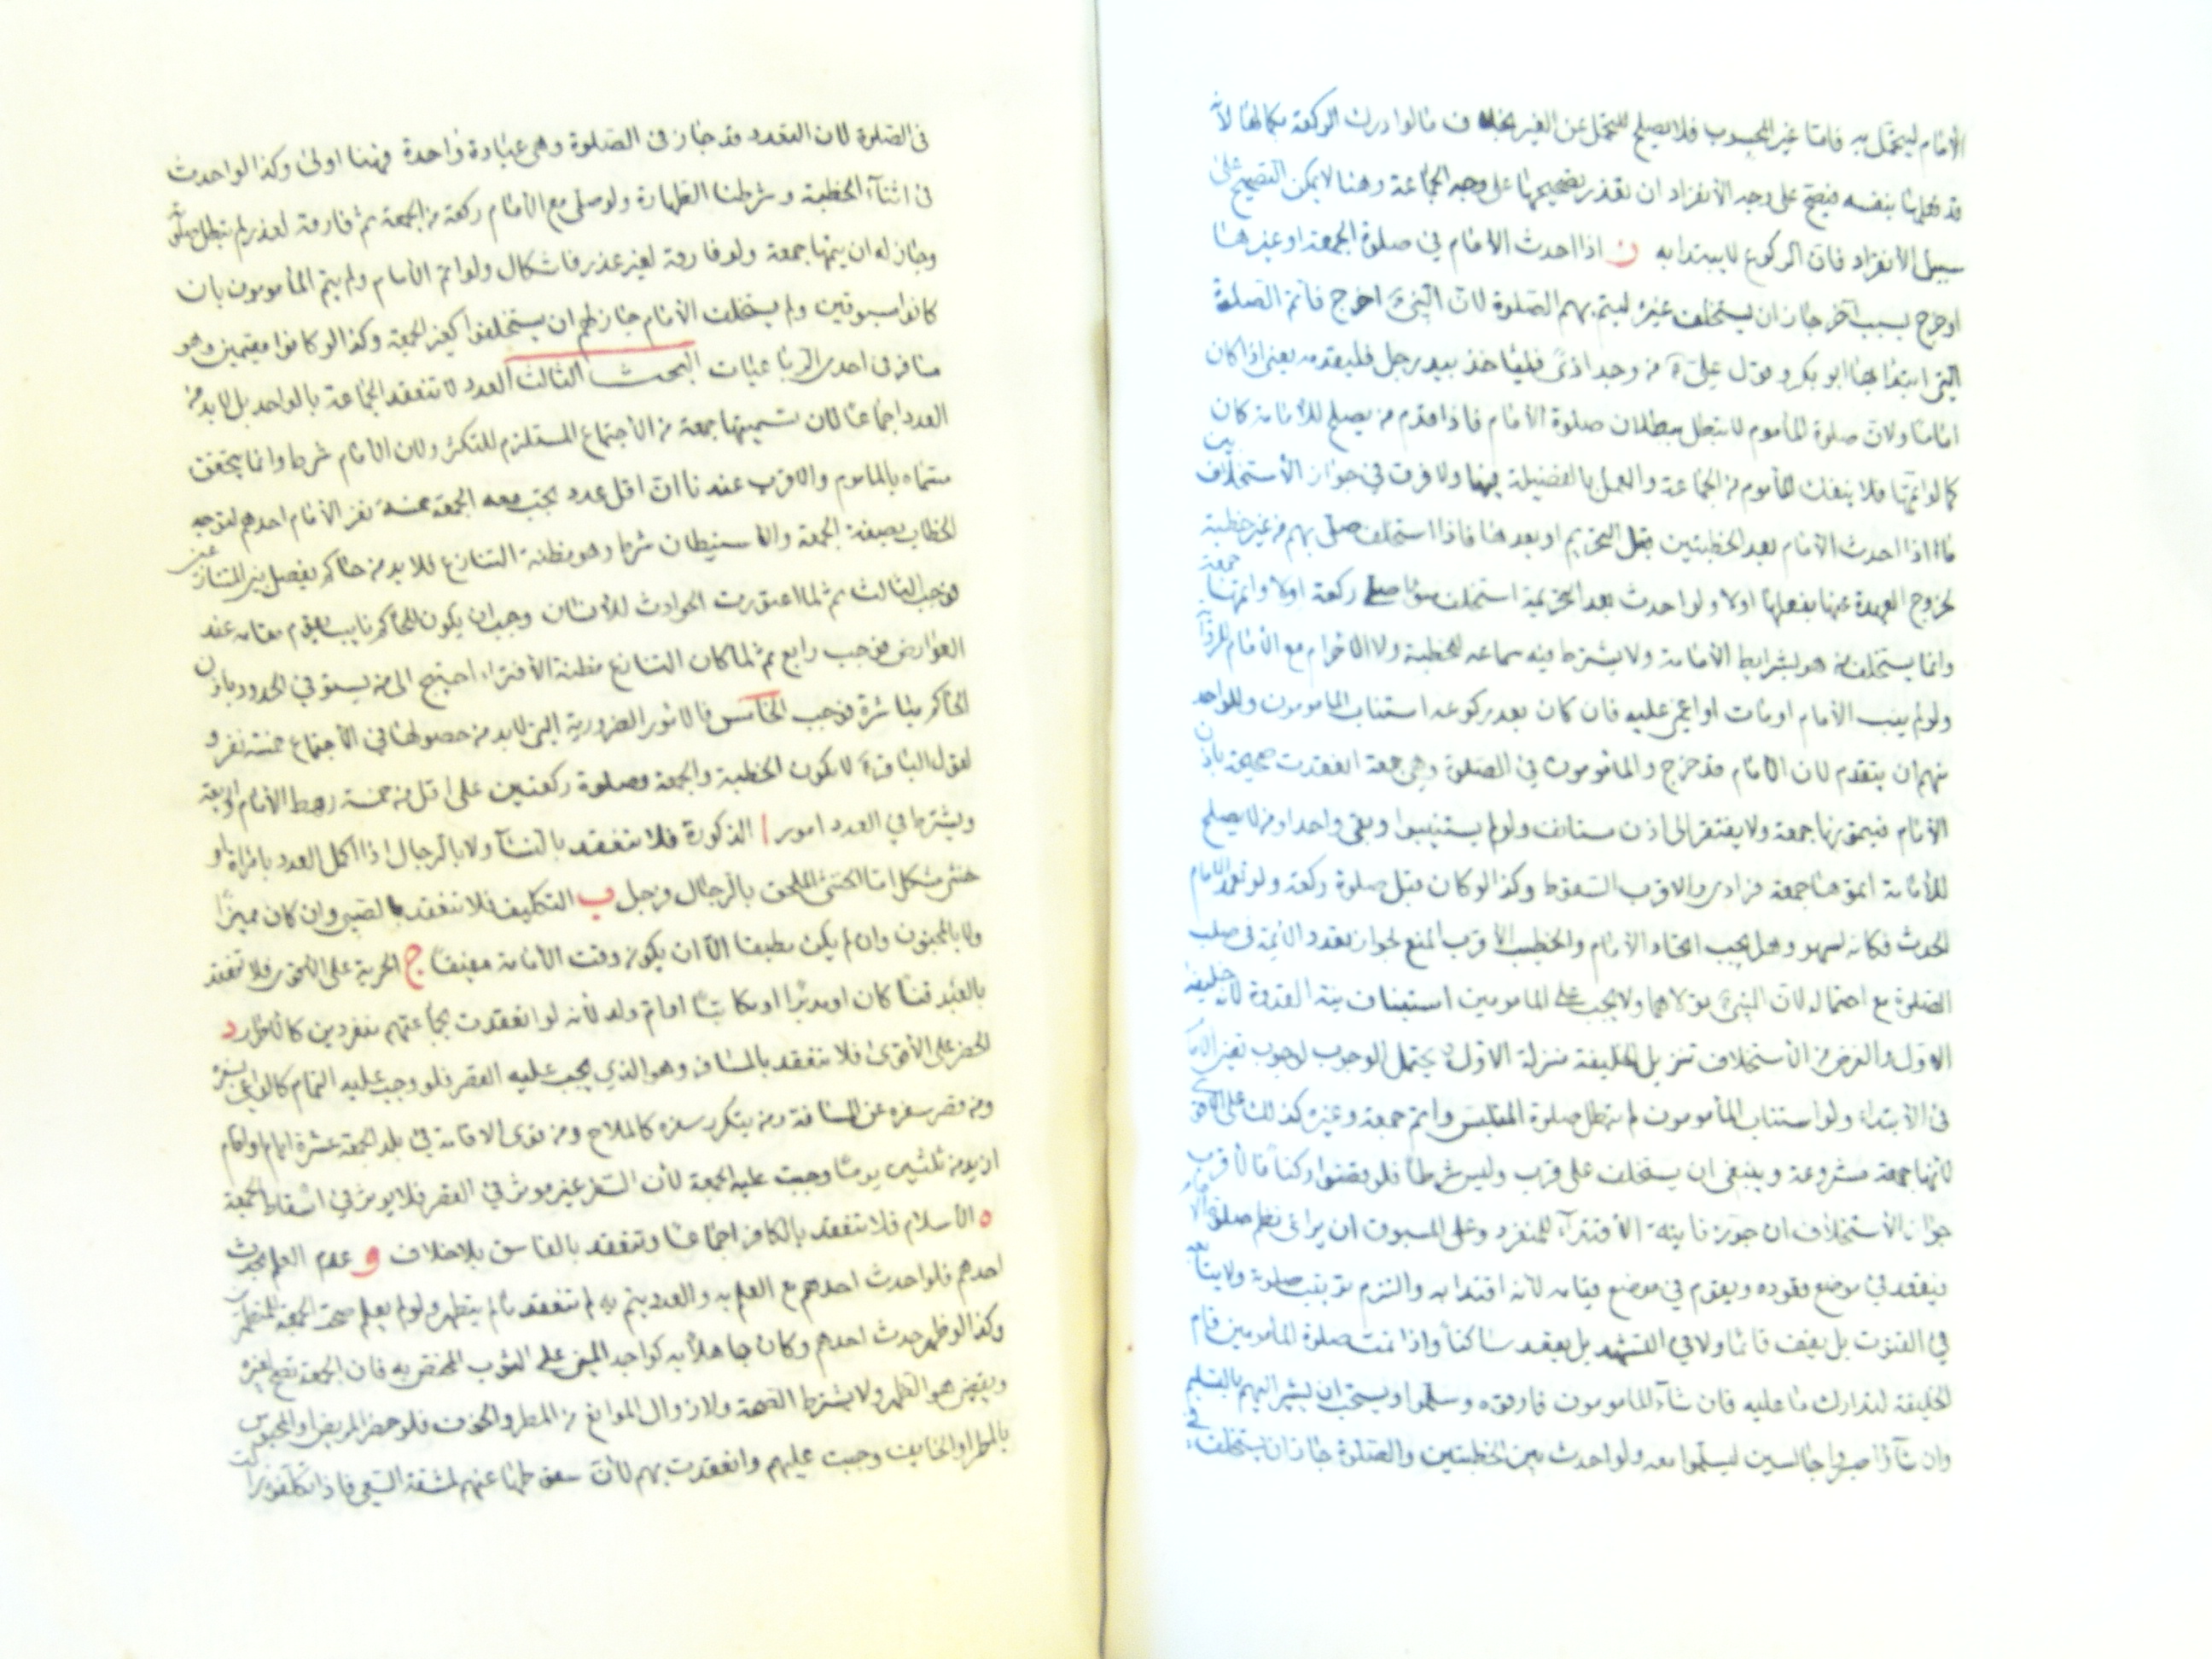 الأمام ليتحمّل به فامّا غير المحسوب فلا يصلح للتحمّل عن الغير بخلاف ما لو ادرك الركعة بكمالها لأنه
قد فعلها بنفسه فتصحّ على وجه الأنفراد ان تعذر تصحيحها على وجه الجماعة وهنا لا يمكن التصحيح على
سبيل الأنفراد فان الركوع لا يبتدا به ن اذا احدث الأمام في صلوة الجمعة او غيرها
او خرج بسبب آخر جاز ان يستخلف غيره ليتم بهم الصلوة لأن النبي ص اخرج فأتم الصلوة
التي ابتدا بها ابو بكر وقول علي ع من وجد اذى فلياخذ بيد رجل فليقدمه يعنى اذا كان
اماما ولان صلوة المأموم لا تبطل ببطلان صلوة الأمام فاذا قدم من يصلح للأمامة كان
كما لو اتمها فلا ينفك المأموم من الجماعة والعمل بالفضيلة فيها ولا فرق في جواز الأستخلاف بين
ما اذا احدث الأمام بعد الخطبتين قبل التحريم او بعدها فاذا استخلف صلى بهم من غير خطبة
لخروج العهدة عنها بفعلها اولا ولو احدث بعد التحريمة استخلف سواء صلى ركعة اولا واتمها جمعة
وانما يستخلف من هو بشرايط الأمامة ولا يشترط فيه سماعه للخطبة ولا الاحرام مع الأمام للرواية
ولو لم ينب الأمام او مات او اغمي عليه فان كان بعد ركوعه استناب المامومون وللواحد
منهم ان يتقدم لان الامام قد خرج والمأمومون في الصلوة وهي جمعة انعقدت صحيحة باذن
الأمام فيتموتها جمعة ولا يفتقر الى اذن مستانف ولو لم يستنيبوا وبقى واحد او من لا يصلح
للأمامة اتموها جمعة فرادى والاقرب السقوط وكذا لو كان قبل صلوة ركعة ولو تعمد الامام
الحدث فكانه لسهو وهل يجب اتحاد الأمام والخطيب الاقرب المنع لجواز تعدد الأئمة في صلب
الصلوة مع احتماله لان النبي ص تولاهما ولا يجب على المامومين استيناف نية القدوة لأنه خليفة
الاول والغرض من الأستخلاف تنزيل الخليفة منزلة الاول ويحتمل الوجوب لوجوب تعيين الأمام
في الأبتداء ولو استناب المأمومون لم تبطل صلوة المتلبس واتم جمعة وغيره كذلك على الاقوى
لأنها جمعة مشروعة وينبغى ان يستخلف على قرب وليس شرطا فلو قضوا ركنا فالأقرب
جواز الأستخلاف ان جوزنا نية الأقتداء للمنفرد وعلى المسبوق ان يراعى نظم صلوة الامام
فيقعد في موضع قعوده ويقوم في موضع قيامه لأنه اقتدا به والتزم ترتيب صلوته ولا يتابعه
في القنوت بل يقف قائما ولا في التشهد بل يقعد ساكنا واذا تمت صلوة المأمومين قام
الخليفة لتدارك ما عليه فان شاء المامومون فارقوه وسلموا ويستحب ان يشير اليهم بالتسليم
وان شاؤا صبروا جالسين ليسلموا معه ولو احدث بين الخطبتين والصلوة جاز ان يستخلف في
في الصلوة لان التعدد قد جاز في الصلوة وهى عبادة واحدة فههنا اولى وكذا لو احدث
في اثناء الخطبة وشرطنا الطهارة ولو صلى مع الأمام ركعة من الجمعة ثم فارقه لعذر لم تبطل صلوته
وجاز له ان يتمها جمعة ولو فارقه لغير عذر فاشكال ولو اتم الأمام ولم يتم المأمومون بان
كانوا مسبوقين ولم يستخلف الأمام جاز لهم ان يستخلفوا كغير الجمعة وكذا لو كانوا مقيمين وهو
مسافر في احدى الرباعيات البحث الثالث العدد لا تنعقد الجماعة بالواحد بل لا بد من
العدد اجماعا لان تسميتها جمعة من الأجتماع المستلزم للتكثر ولان الامام شرط وانما يتحقق
مسماه بالماموم والاقرب عندنا ان اقل عدد تجب معه الجمعة خمسة نفر الأمام احدهم لتوجه
الخطاب بصيغة الجمعة والأستيطان شرط وهو مظنة التنازع فلا بد من حاكم يفصل بين المتنازعين
فوجب الثالث ثم لما اعتورت الحوادث للأنسان وجب ان يكون للحاكم نايب يقوم مقامه عند
العوارض فوجب رابع ثم لما كان التنازع مظنة الأفتراء احتيج الى من يستوفي الحدود باذن
الحاكم مباشرة فوجب الخامس فالأمور الضرورية التي لا بد من حصولها في الأجتماع خمسة نفر و
لقول الباقر ع لا يكون الخطبة والجمعة وصلوة ركعتين على اقل من خمسة رهط الأمام واربعة
ويشترط في العدد امور ا الذكورة فلا تنعقد بالنساء ولا بالرجال اذا اكمل العدد بامراة او
خنثى مشكل اما الخنثى الملحق بالرجال فرجل ب التكليف فلا تنعقد بالصبى وان كان مميزا
ولا بالمجنون وان لم يكن مطبقا الا ان يكون وقت الأقامة مفيقا ج الحرية على الاقوى فلا تنعقد
بالعبد قنا كان او مدبرا او مكاتبا او ام ولد لأنه لو انعقدت بجماعتهم منفردين كالاحرار د
الحضر على الأقوى فلا تنعقد بالمسافر وهو الذي يجب عليه القصر فلو وجب عليه التمام كالعاصى بسفره
ومن قصر سفره عن المسافة ومن يتكرر سفره كالملاح ومن نوى الاقامة في بلد الجمعة عشرة ايام او اقام
ازيد من ثلثين يوما وجبت عليه الجمعة لأن السفر غير موثر في القصر فلا يوثر في اسقاط الجمعة
ه الأسلام فلا تنعقد بالكافر اجماعا وتنعقد بالفاسق بلا خلاف و عدم العلم بحدث
احدهم فلو احدث احدهم مع العلم به والعدد يتم به لم تنعقد ما لم يتطهر ولو لم يعلم صحت الجمعة للمتطهرين
وكذا لو ظهر حدث احدهم وكان جاهلا به كواجد المنى على الثوب المختص به فان الجمعة تصح لغيره
ويقضى هو الظهر ولا يشترط الصحة ولا زوال الموانع من المطر والخوف فلو حضر المريض او المحبوس
بالمطر او الخايف وجبت عليهم وانعقدت بهم لأن سقوطها عنهم لمشقة السعى فاذا تكلفوه زالت